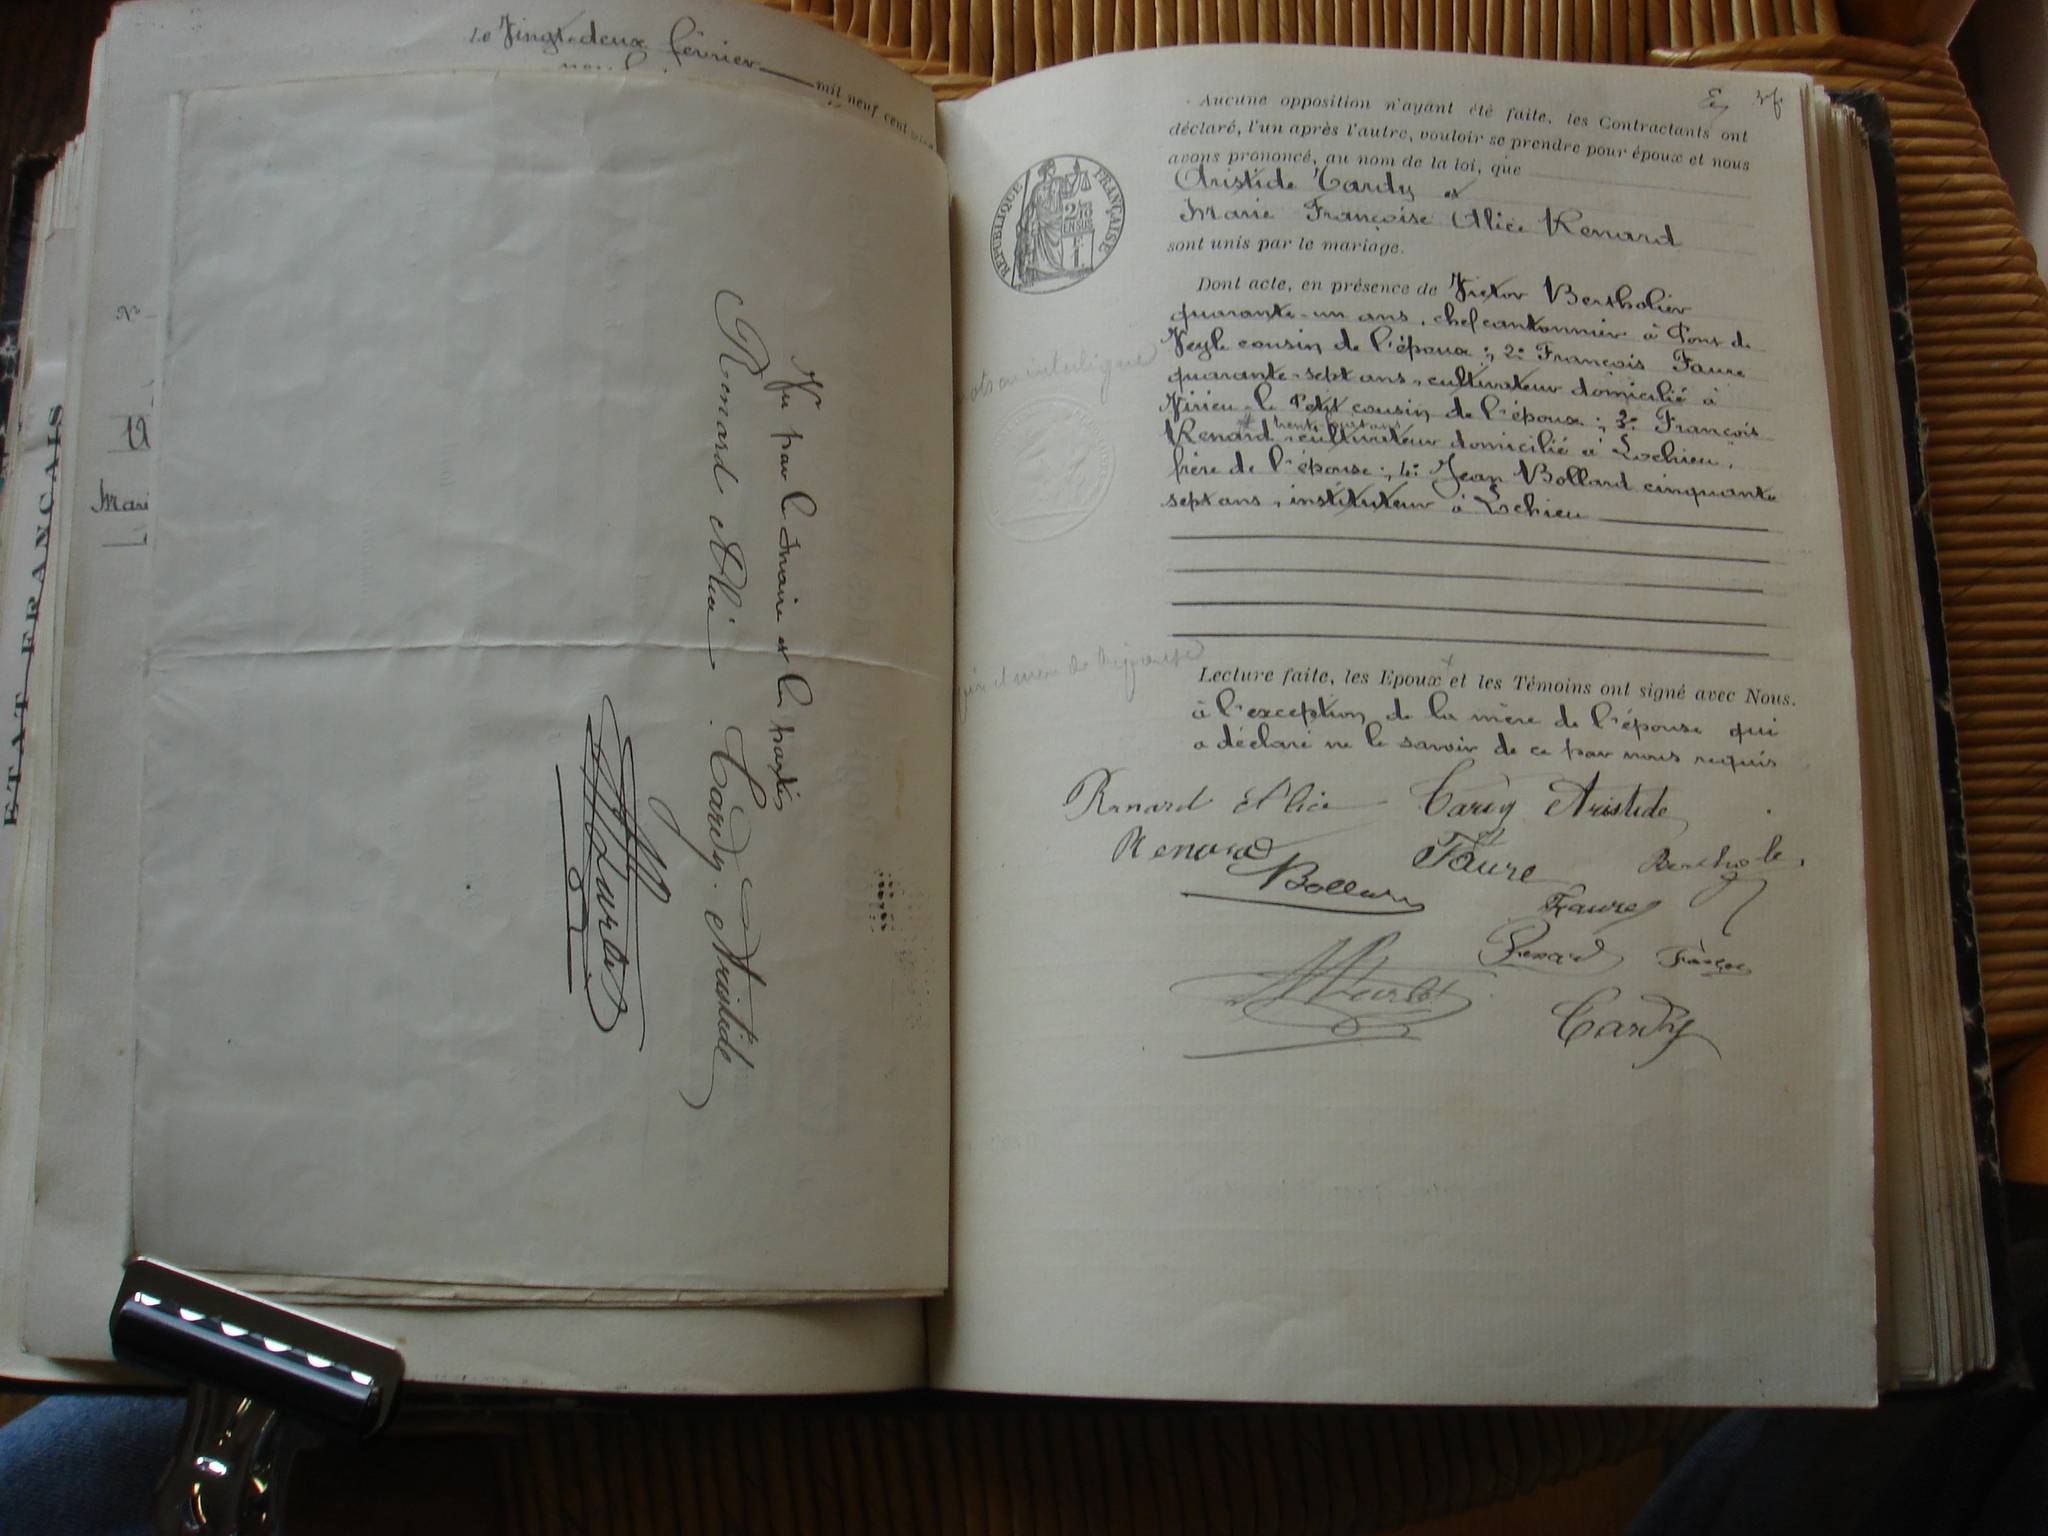 Le Vingt-deux février
mil neuf cent
ETAT FRANÇAIS
No
Mari
Vu par le maire et les parties
Renard Alice Tardy Aristide
RÉPUBLIQUE FRANÇAISE
2/10
EN SUS
1F
Aucune opposition n'ayant été faite, les Contractants ont
déclaré, l'un après l'autre, vouloir se prendre pour époux et nous
avons prononcé, au nom de la loi, que
Aristide Tardy et
Marie Françoise Alice Renard
sont unis par le mariage.
Dont acte, en présence de Victor Bertholier
quarante-un ans, chef cantonnier à Pont de
Veyle cousin de l'époux ; 2° François Faure
quarante-sept ans, cultivateur domicilié à
Virieu-le Petit cousin de l'époux ; 3° François
Renard, cultivateur domicilié à Lochieu,
frère de l'épouse ; 4° Jean Bollard cinquante
sept ans, instituteur à Lochieu
Lecture faite, les Epoux et les Témoins ont signé avec Nous.
à l'exception de la mère de l'épouse qui
a déclaré ne le savoir de ce par nous requis
Renard Alice Tardy Aristide
Renard Faure
Bollard Faure
Renard François
Tardy